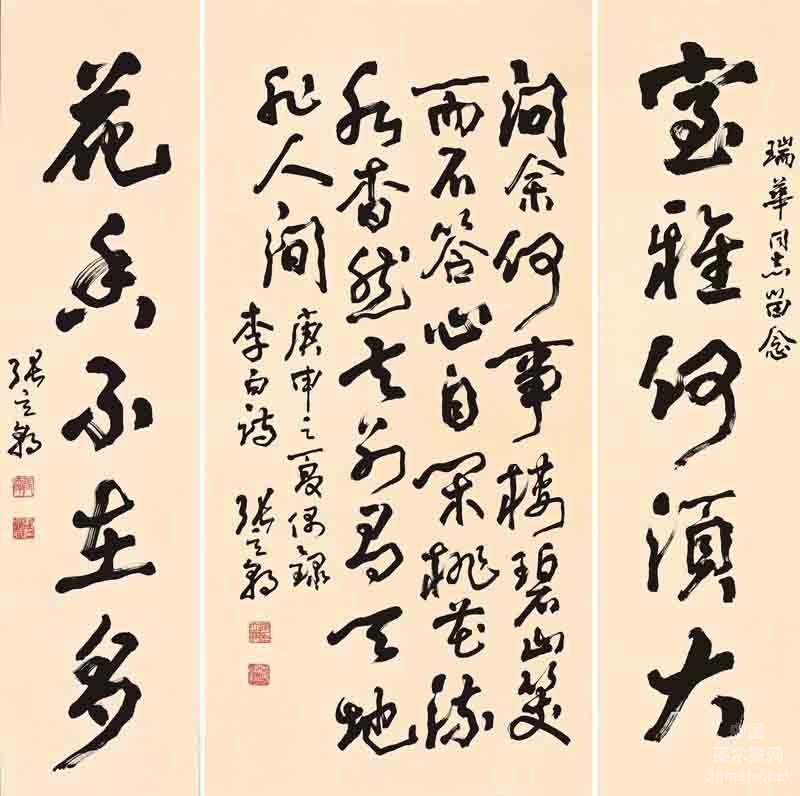 瑞華同志留念
室雅何須大
問余何事棲碧山笑
而不答心自閑桃花流
水杳然去别有天地
非人間
庚申之夏偶錄
李白詩 張立
花香不在多
張立